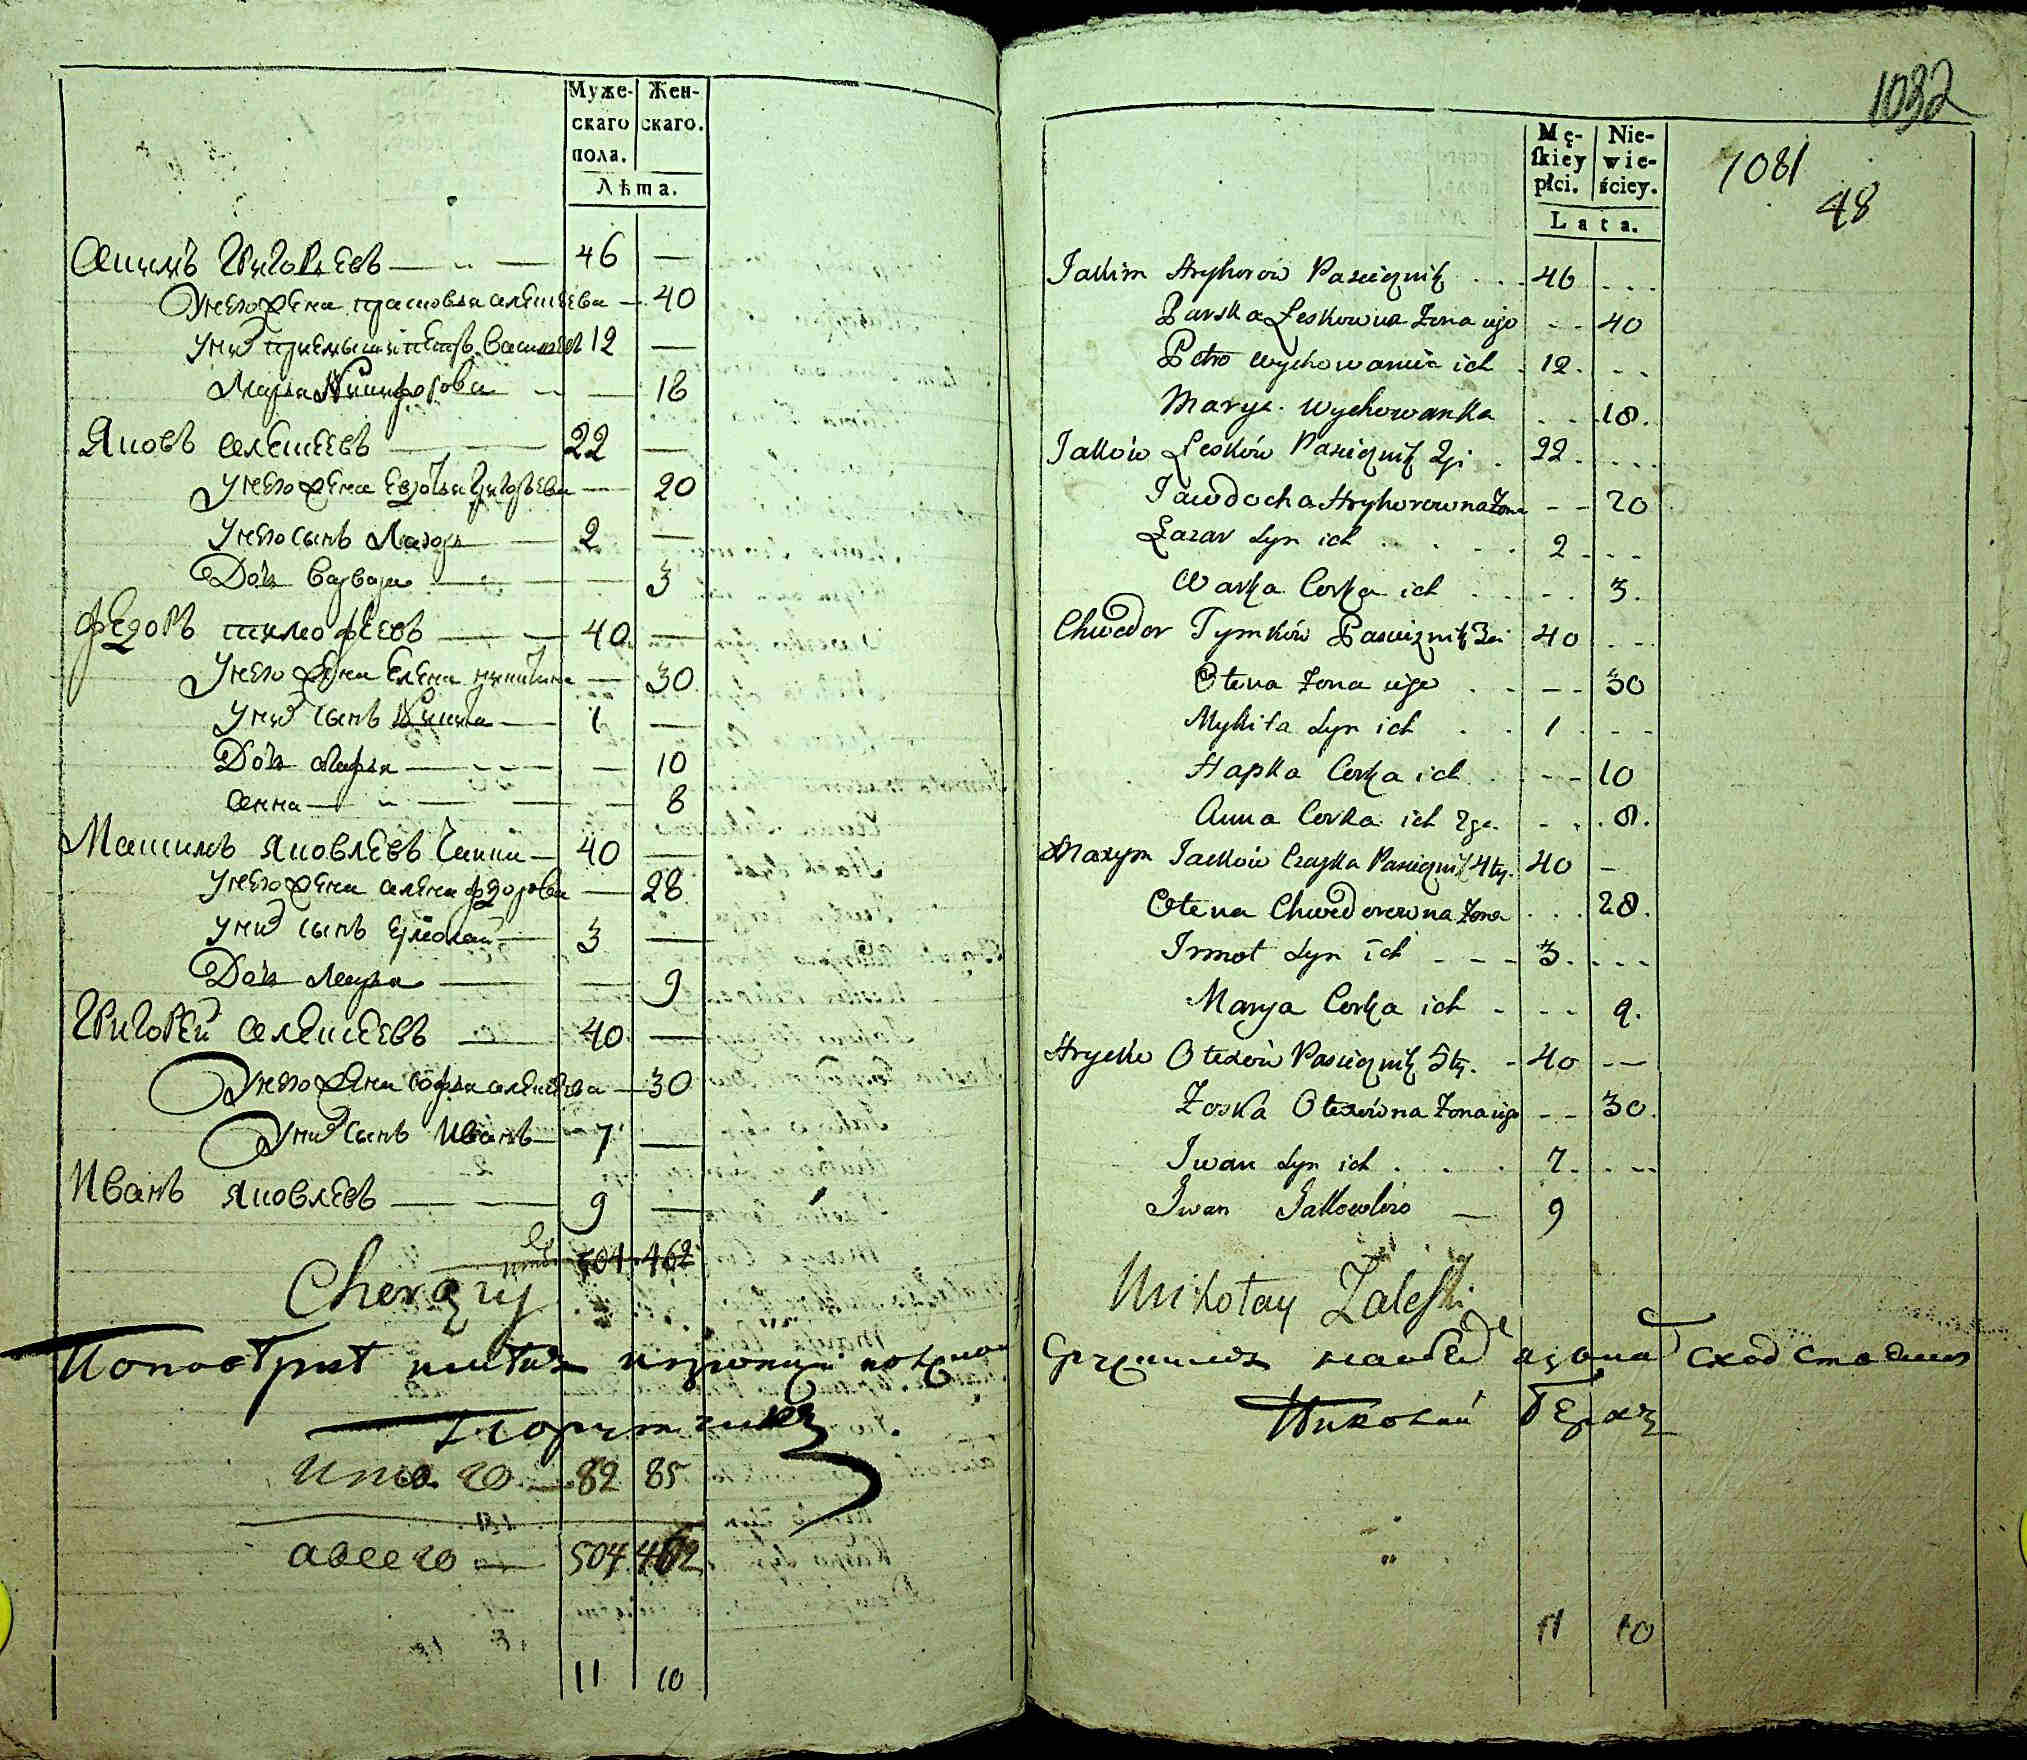 Муже-
скаго
пола.
Жен-
скаго.
Лѣта.
Якимъ Григорьевъ 46 —
Унего жена прасковья алексеева — 40
Уних приемыши петръ Васильевъ 12 —
Марья Никифорова — 18
Яковъ алексеевъ 22 —
Унего жена евдотья Григорьева — 20
Унего сынъ Лазорь 2 —
Дочь варвара — 3
Федоръ тимофеевъ 40 —
Унего жена Елена никитина — 30
Уних сынъ Никита 1 —
Дочь Агафья — 10
анна — 8
Максимъ яковлевъ Чапки 40 —
Унего жена алена федорова — 28
Уних сынъ ермолай 3 —
Дочь Марья — 9
Григорей алексеевъ 40 —
Унего жена софья алексеева — 30
Уних сынъ Иванъ 7 —
Иванъ яковлевъ 9 —
504 462
Поручикъ
итого 82 85
авсего 504 462
11 10
1032
Mę-
skiey
płci.
Nie-
wie-
ściey.
Lata.
1081
48
Jakim Hryhorów Pasiecznik 46
Parska Leskowna Zona iego 40
Petro wychowaniec ich 12
Marya wychowanka 18
Jaków Lesków Pasiecznik 2gi 22
Jawdocha Hryhorowna Zona 20
Łazar Syn ich 2
Warka Corka ich 3
Chwedor Tymków Pasiecznik 3ci 40
Olena Zona iego 30
Mykita Syn ich 1
Hapka Corka ich 10
Anna Corka ich 2ga 8
Maxym Jackow Czapka Pasiecznik 4ty 40 —
Olena Chwedorowna Zona 28
Irmol Syn ich 3
Marya Corka ich 9
Hrycko Olexów Pasiecznik 5ty 40 —
Zoska Olexówna Zona iego 30
Iwan Syn ich 7
Iwan Jakowlew — 9
Mikołay Zaleski
11 10